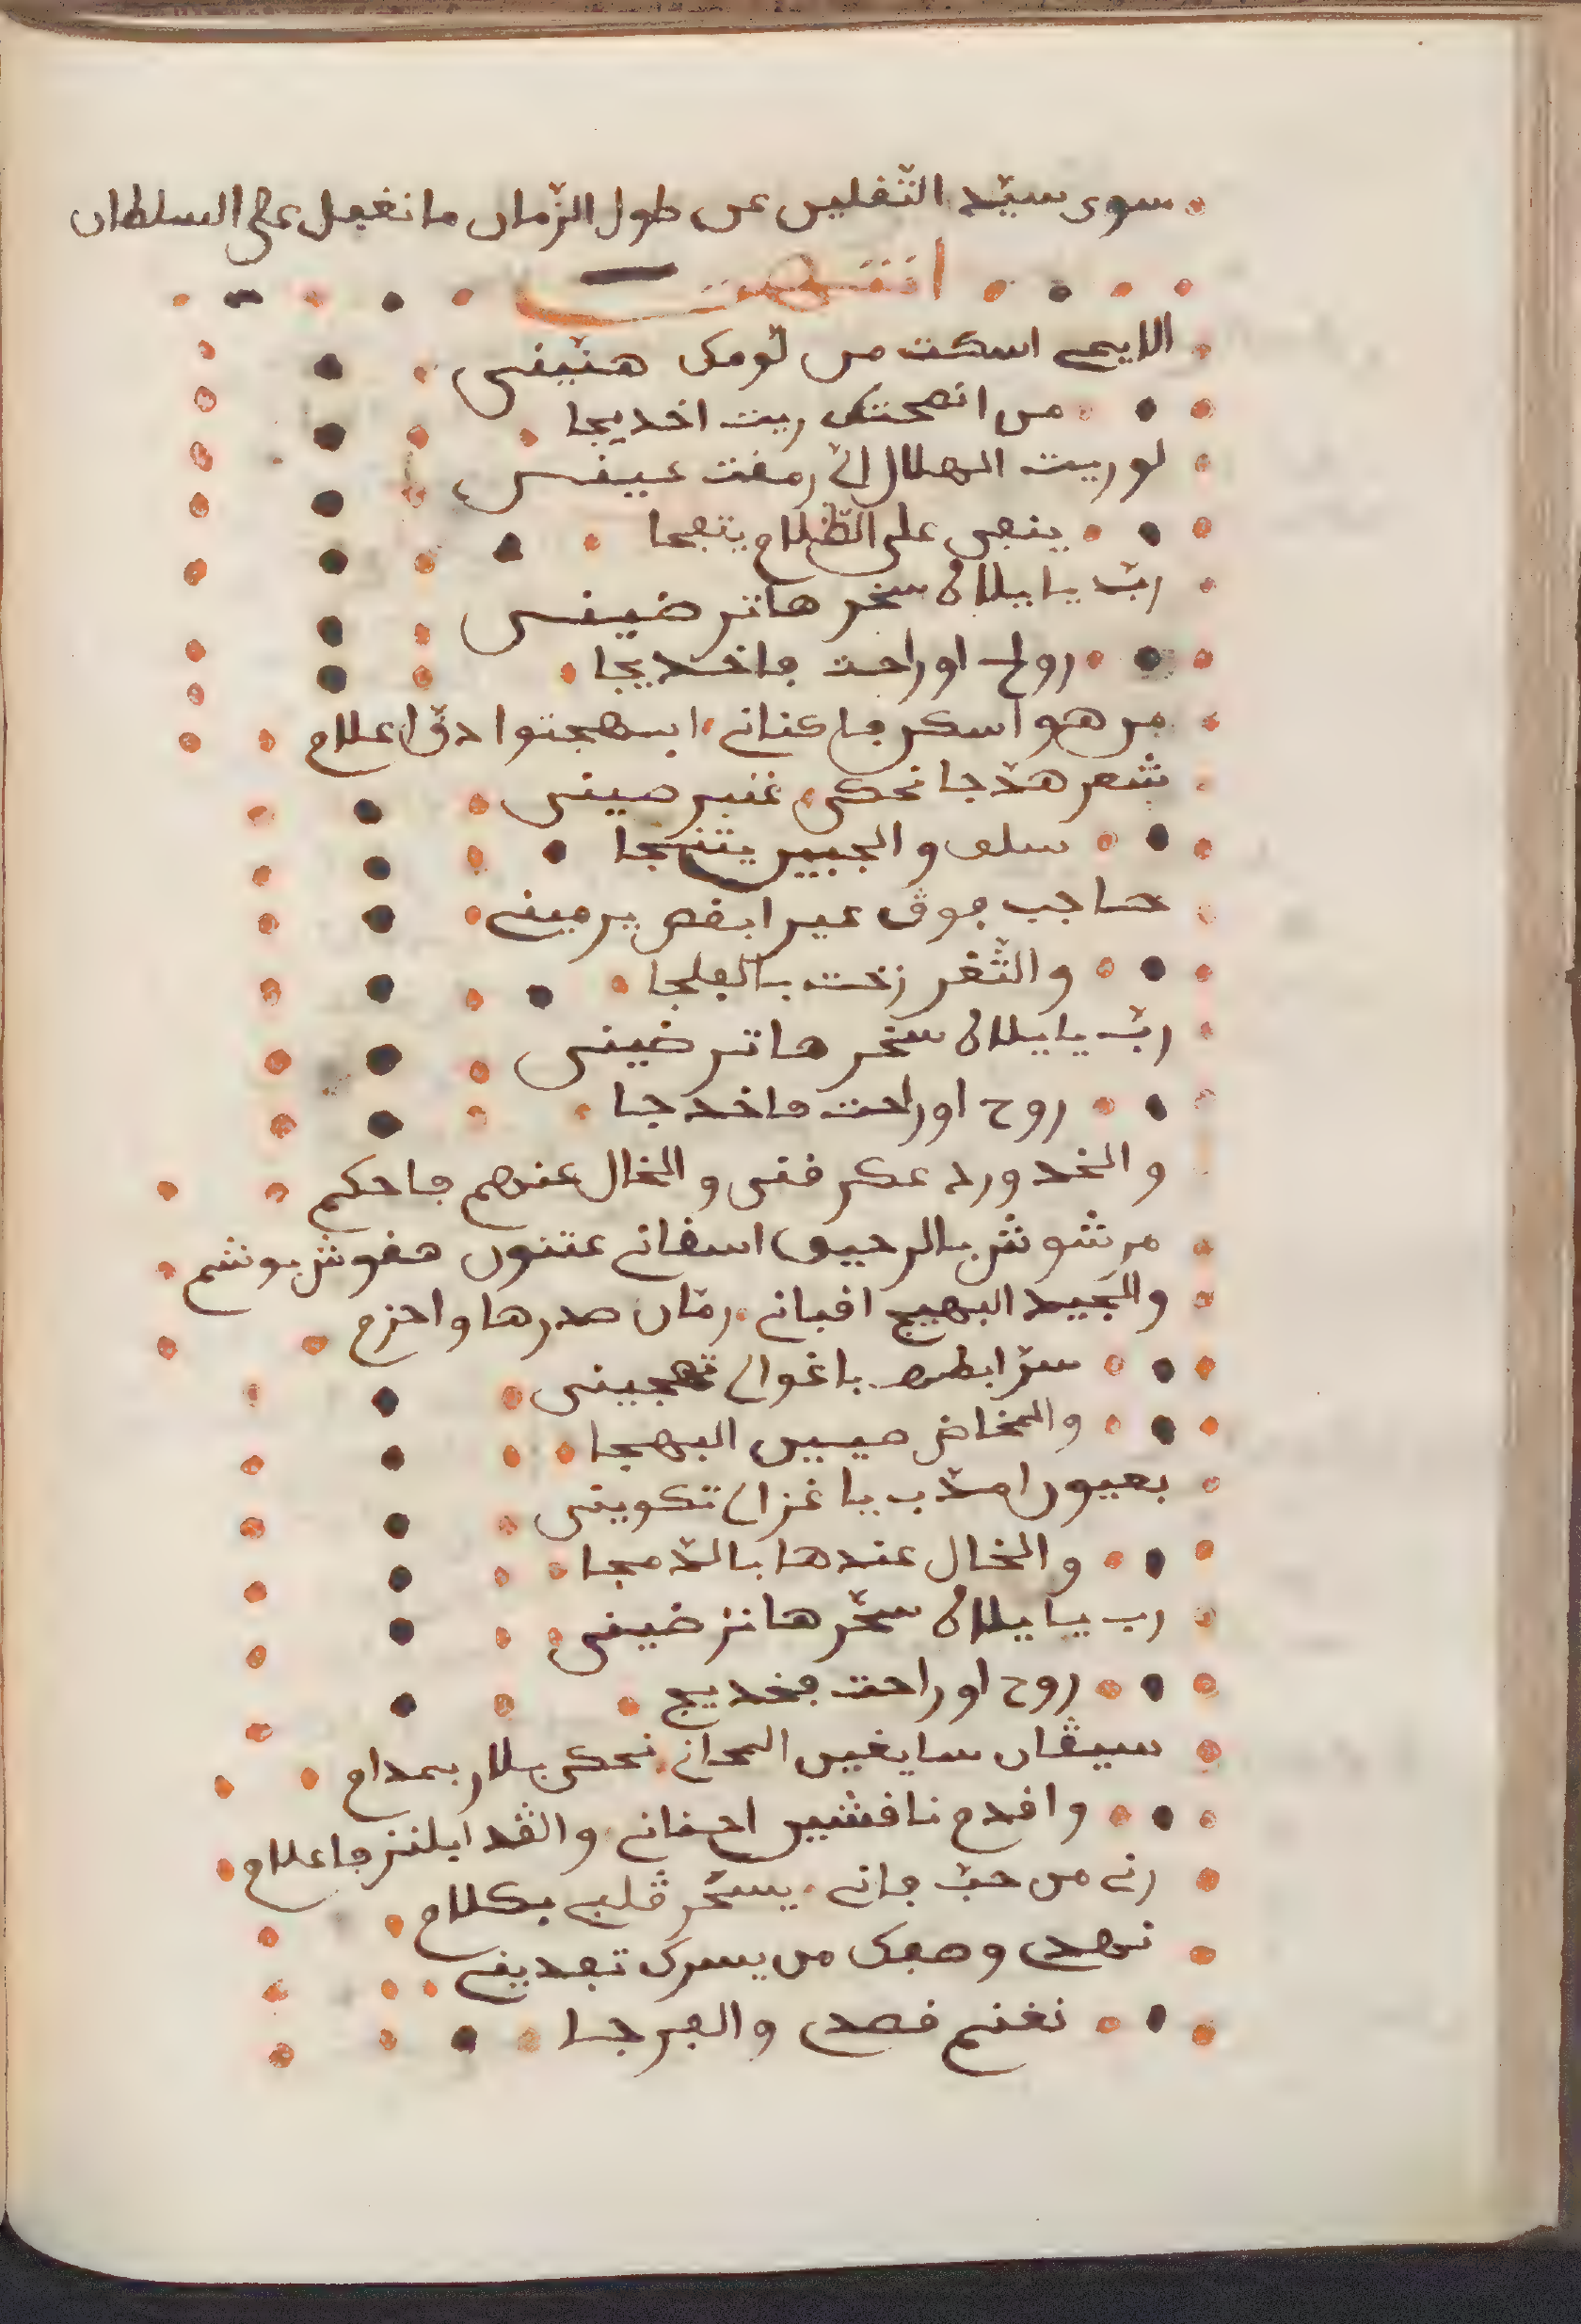 سوى سيّد الثّقلين عن طول الزّمان ما نغفل على السلطان
انتهت
الايمي اسكت من لّومك هنّيني
من انصحتك ريت اخديجا
لو ريت الهلال الي رمقت عيني
ينفى على الظّلام يتفجا
ربّ يا بيلاه سخرها ترضيني
روح او راحت فاخديجا
من هو اسكر فاكناني ابهجتوا دق اعلام
شعر هدّجا نحكي غنبر صيني
سلف والجبين يتنهجا
حاجب فوق عين ابقص يرميني
والثّغر زخت بالفلجا
ربّ يا بيلاه سخرها ترضيني
روح او راحت فاخدجا
والخد ورد عكر فني والخال عنبرهم فاحكم
مرشوش بالرحيق اسقاني عتنون منقوش بوشم
والجيد البهيج افباني رمّان صدرها واحزم
سرّا بطن باغوالي تهجيني
والمخاض صيين البهجا
بعيون امدّب يا غزالي تكويني
والخال عندها بالدّمجا
رب يا بيلاه سخّرها ترضيني
روح او راحت فخديج
سيڨان سايغين المحاني نحكي بلار بمدام
واقدم ناقشين احناني والڨد ابلنز فاعلام
رني من حبّ فاني يسحّر ڨلبي بكلام
نهدي وصفك من يسرك تفديني
نغنم قصدي والفرجا